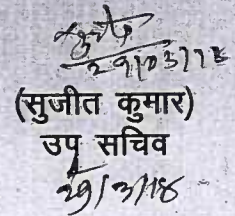 29/03/18
(सुजीत कुमार)
उप सचिव
29/3/18